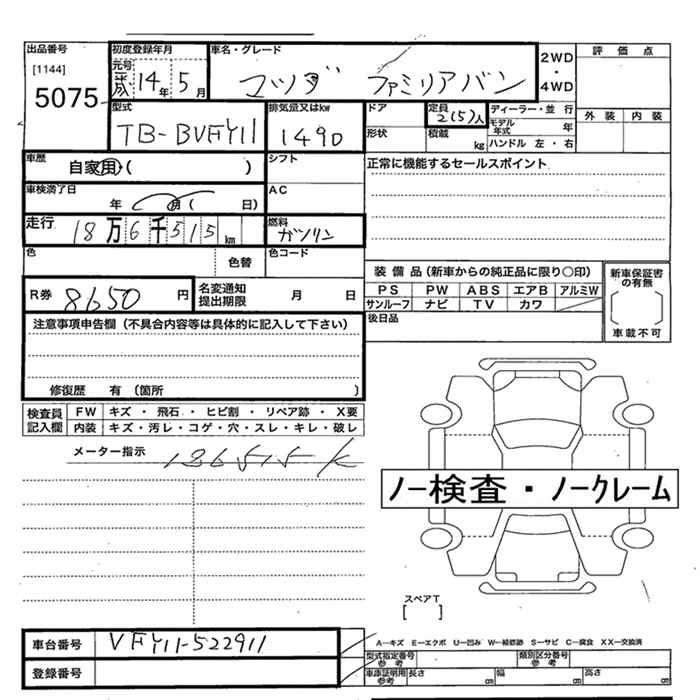 出品番号 初度登録年月 車名・グレード 2WD・4WD 評価点
[1144] 元号 平成 14年 5月 マツダ ファミリアバン
5075
型式 排気量又はkw ドア 定員 2(5)人 ディーラー・並行 外装 内装
TB-BVFY11 1490 形状 積載 kg モデル年式 年
ハンドル 左・右
車歴 シフト 正常に機能するセールスポイント
自家用・( )
車検満了日 AC
年 月( 日)
走行 18万6千515km 燃料 ガソリン
色 色替 色コード
装備品(新車からの純正品に限り○印) 新車保証書の有無
R券 8650円 名変通知提出期限 月 日 PS PW ABS エアB アルミW
サンルーフ ナビ TV カワ
注意事項申告欄(不具合内容等は具体的に記入して下さい) 後日品 車載不可
修復歴 有 (箇所 )
検査員記入欄 FW キズ・飛石・ヒビ割・リペア跡・X要
内装 キズ・汚レ・コゲ・穴・スレ・キレ・破レ
メーター指示 186515K
ノー検査・ノークレーム
スペアT
[ ]
車台番号 VFY11-522911 A−キズ E−エクボ U−凹み W−補修跡 S−サビ C−腐食 XX−交換済
型式指定番号 参考 類別区分番号 参考
登録番号 車庫証明用 参考 長さ cm 幅 cm 高さ cm